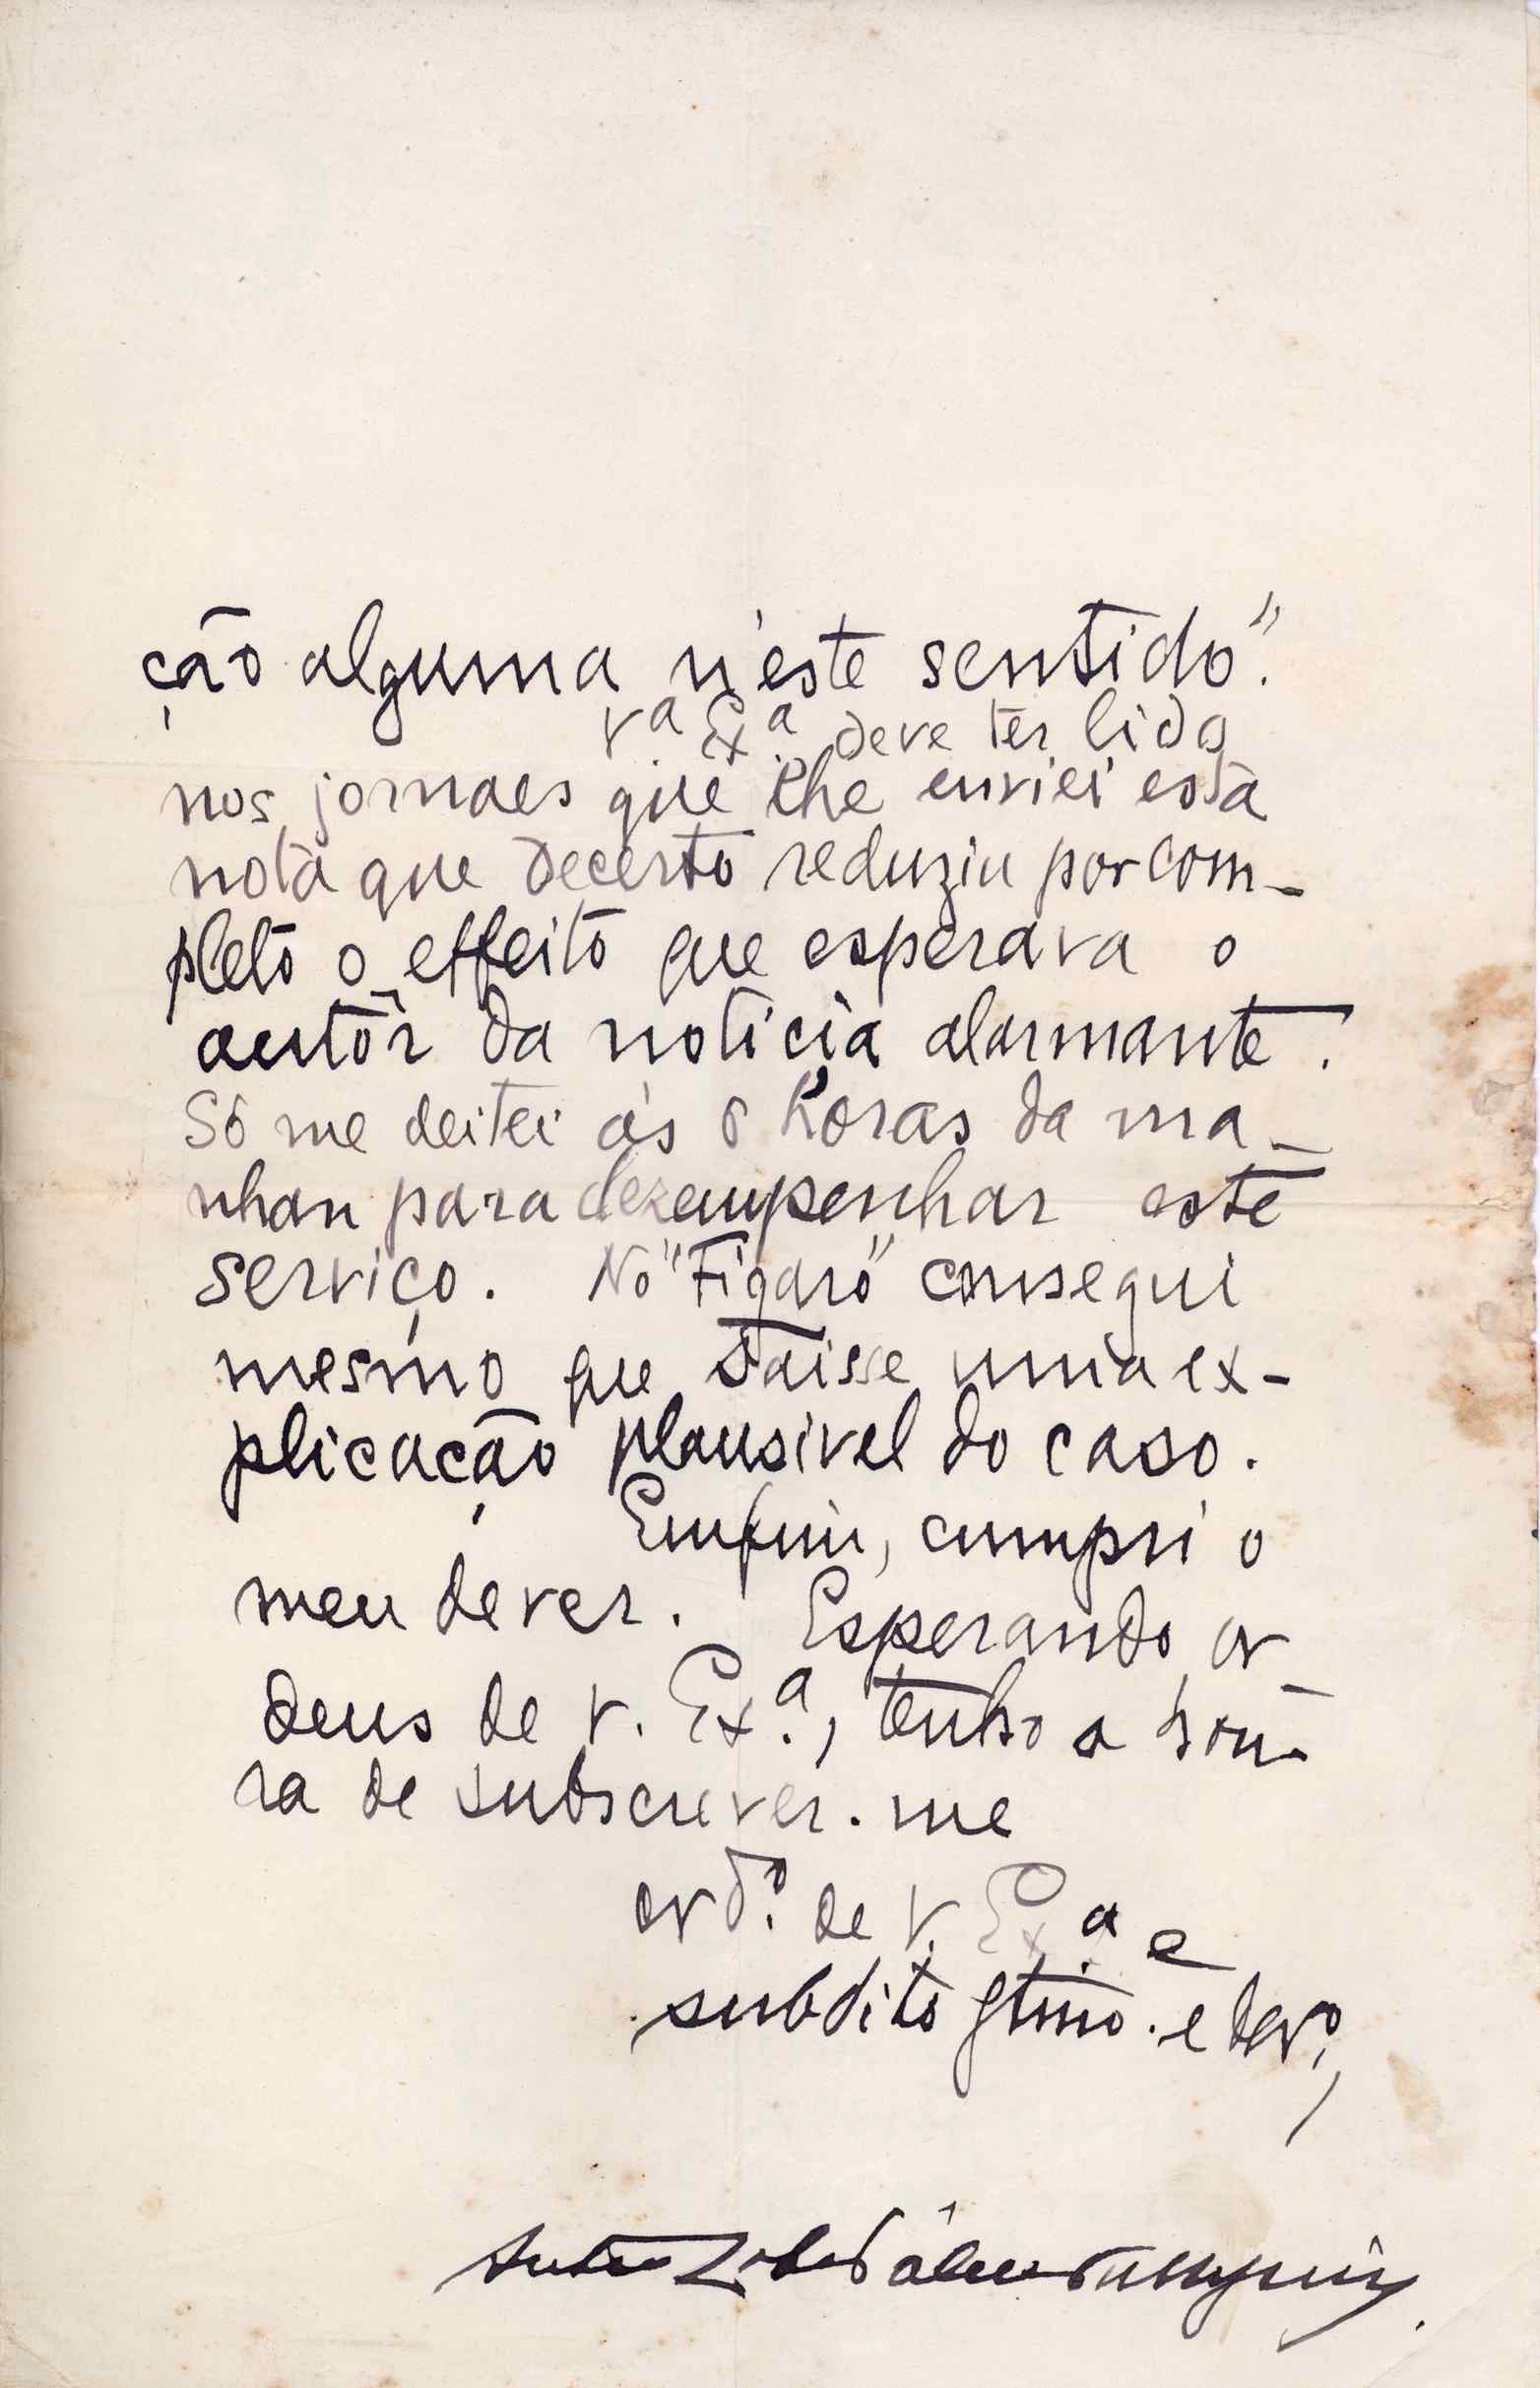 ção alguma n'este sentido".
Vª Exª. deve ter lido
nos jornaes que lhe enviei esta
nota que decerto reduziu por com-
pleto o effeito que esperava o
autôr da noticia alarmante.
Só me deitei ás 6 horas da ma-
nhan para dezempenhar este
serviço. No "Figaro" consegui
mesmo que saisse uma ex-
plicação plausivel do caso.
Emfim, cumpri o
meu dever. Esperando or-
dens de V. Exª., tenho a hon-
ra de subscrever-me
de V. Exª. e
subdito gtmo. e